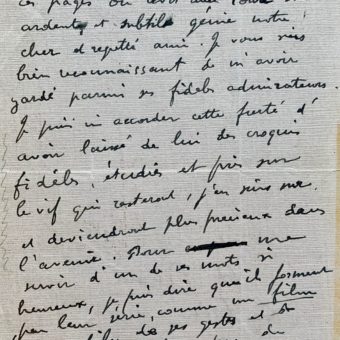 ces pages où revit avec tout
ardent et subtil génie notre
cher et regretté ami. Je vous suis
bien reconnaissant de m'avoir
gardé parmi ses fidèles admirateurs.
Je puis m'accorder cette fierté d'
avoir laissé de lui des croquis
fidèles, étudiés et pris sur
le vif qui resteront, j'en suis sur
et deviendront plus précieux dans
l'avenir. Pour me
servir d'un de ses mots si
heureux, je puis dire qu'ils forment
par leur série, comme un film
de ses gestes et
de